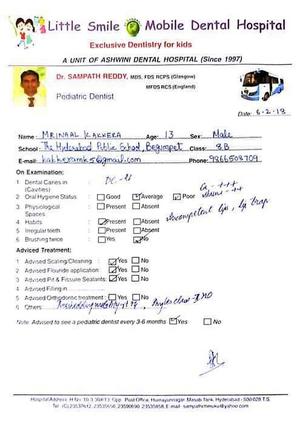 Little Smile Mobile Dental Hospital
Exclusive Dentistry for kids
A UNIT OF ASHWINI DENTAL HOSPITAL (Since 1997)
Dr. SAMPATH REDDY, MDS, FDS RCPS (Glasgow)
MFDS RCS (England)
Pediatric Dentist
Date: 6-2-18
Name: MRINAAL KALKERA Age: 13 Sex: Male
School: The Hyderabad Public School, Begumpet Class: 8B
E-mail: @gmail.com Phone: 9866503709
On Examination:
1 Dental Caries in (Cavities)
2 Oral Hygiene Status Good Average Poor
3 Physiological Spaces Present Absent
4 Habits Present Absent Incompetent lips, lip trap
5 Irregular teeth Present Absent
6 Brushing twice Yes No
Adviced Treatment:
1 Advised Scaling/Cleaning : Yes No
2 Advised Flouride application Yes No
3 Advised Pit & Fissure Sealants Yes No
4 Advised Filling in
5 Advised Orthodontic treatment : Yes No
6 Others
Note: Advised to see a pediatric dentist every 3-6 months Yes No